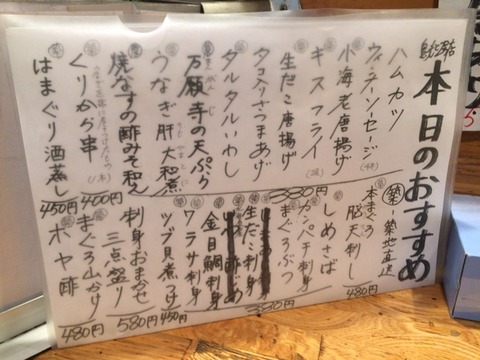 本日のおすすめ
築 - 築地直送
ハムカツ
ウィンナーソーセージ(4本)
小海老唐揚げ
キスフライ
生だこ唐揚げ
タコ入りさつまあげ
タルタルいわし
万願寺の天ぷら
まんがんじ
うなぎ肝大和煮
焼なすの酢みそ和え
380円
くりから串
400円
はまぐり酒蒸し
450円
本まぐろ脳天刺し
480円
しめさば
カンパチ刺身
まぐろぶつ
生だこ刺身
380円
金目鯛刺身
ワラサ刺身
ツブ貝煮つけ
450円
刺身おまかせ
三点盛り
580円
まぐろ山かけ
ホヤ酢
480円